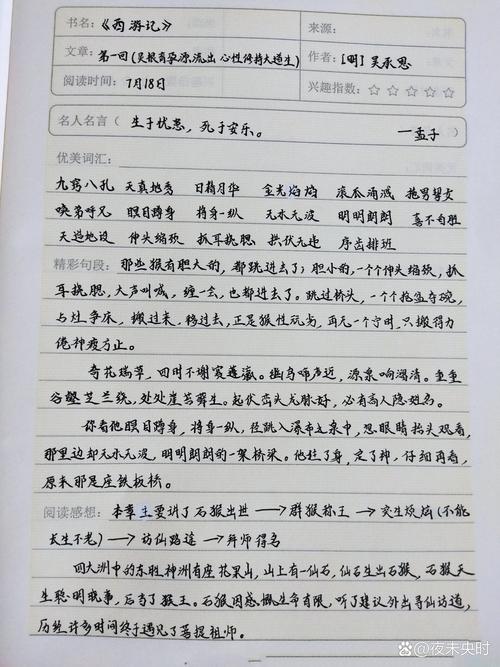 书名：《西游记》
来源：
文章：第一回（灵根育孕源流出 心性修持大道生）
作者：[明] 吴承恩
阅读时间：7月18日
兴趣指数：☆☆☆☆☆
名人名言（ 生于忧患，死于安乐。 —孟子 ）
优美词汇：
九窍八孔 天真地秀 日精月华 金光焰焰 滚瓜涌溅 拖男挈女
唤弟呼兄 瞑目蹲身 将身一纵 无水无波 明明朗朗 喜不自胜
天造地设 伸头缩颈 抓耳挠腮 拱伏无违 序齿排班
精彩句段：那些猴有胆大的，都跳进去了；胆小的，一个个伸头缩颈，抓
耳挠腮，大声叫喊，缠一会，也都进去了。跳过桥头，一个个抢盆夺碗，
占灶争床，搬过来，移过去，正是猴性顽劣，再无一个宁时，只搬得力
倦神疲方止。
奇花瑞草，四时不谢赛蓬瀛。幽鸟啼声近，源泉响溜清。重重
谷壑芝兰绕，处处崖苔藓生。起伏峦头龙脉好，必有高人隐姓名。
你看他瞑目蹲身，将身一纵，径跳入瀑布泉中，忽睁睛抬头观看，
那里边却无水无波，明明朗朗的一架桥梁。他住了身，定了神，仔细再看，
原来那是座铁板桥。
阅读感想：本章主要讲了石猴出世 → 群猴称王 → 突生烦恼（不能
长生不老）→ 访仙踏途 → 拜师得名
四大洲中的东胜神洲有座花果山，山上有一仙石，仙石生出石猴，石猴天
生聪明晓事，后当了猴王。石猴因感慨生命有限，听了建议外出寻仙访道，
历经许多时间终于遇见了菩提祖师。
百家号@夜未央时